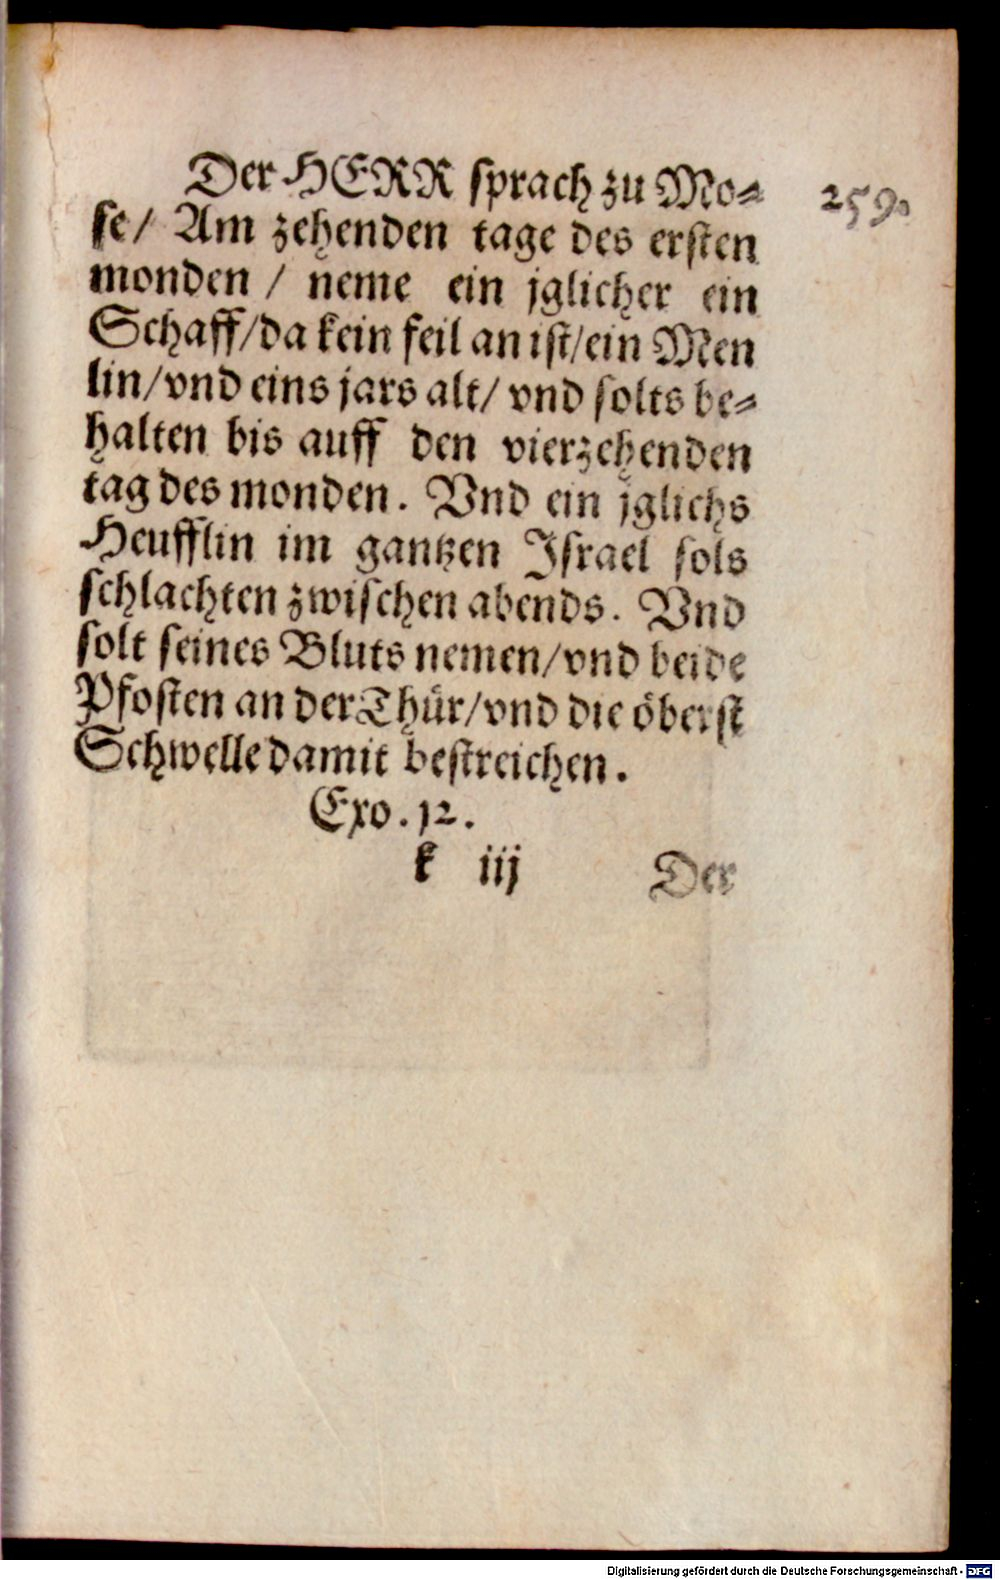 Der HERR sprach zu Mo-
259.
se/ Am zehenden tage des ersten
monden / neme ein jglicher ein
Schaff/da kein feil an ist/ein Men
lin/vnd eins jars alt/ vnd solts be-
halten bis auff den vierzehenden
tag des monden. Vnd ein jglichs
Heufflin im gantzen Jsrael sols
schlachten zwischen abends. Vnd
solt seines Bluts nemen/vnd beide
Pfosten an der Thür/vnd die öberst
Schwelle damit bestreichen.
Exo. 12.
k iij Der
Digitalisierung gefördert durch die Deutsche Forschungsgemeinschaft - DFG